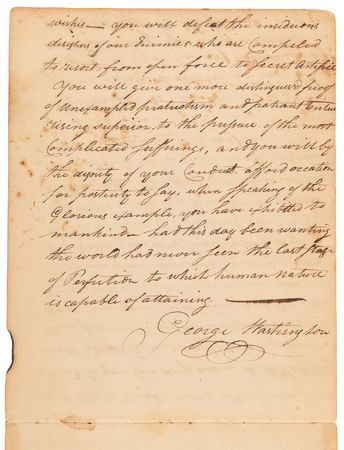 wishes — you will defeat the insidious
designs of our Enimies who are Compeled
to resort from open force to Secret Artifice
You will give one more distinguish proof
of Unexampled patriotism and patiant virtue
rising superior to the pressure of the most
Complicated sufferings, and you will by
the dignity of your Conduct, afford occation
for posterity to say, when speaking of the
Glorious example, you have exhibited to
mankind — had this day been wanting
the world had never seen the last Stage
of Perfection to which human nature
is capable of attaining. —
George Washington